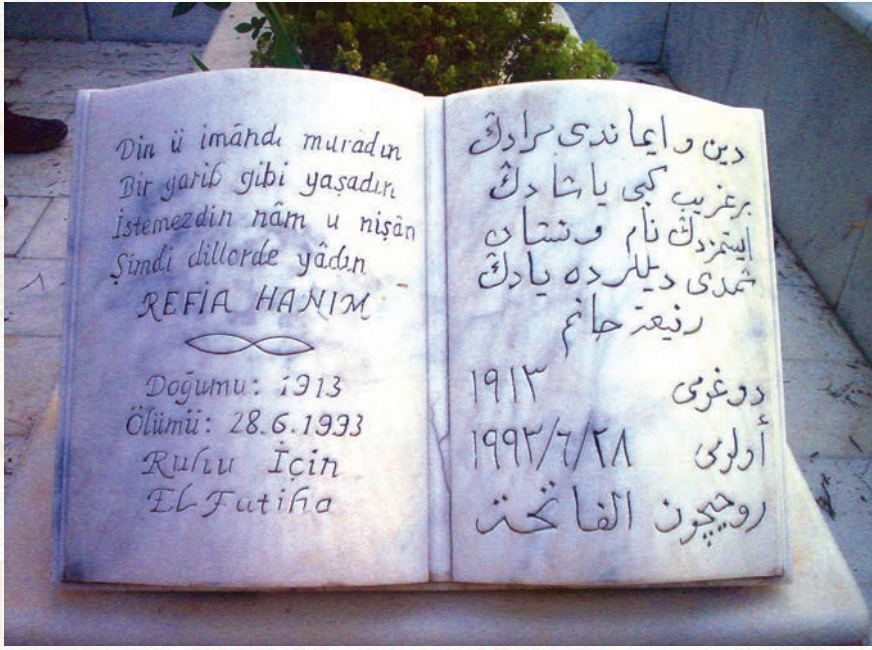 Din ü imândı muradın
Bir garib gibi yaşadın
İstemezdin nâm u nişân
Şimdi dillerde yâdın
REFİA HANIM
Doğumu: 1913
Ölümü: 28.6.1993
Ruhu İçin
EL Fatiha
دين و ايماندى مرادڭ
برغريب كبى ياشادڭ
ايستمزدڭ نام و نشان
شمدى ديللرده يادڭ
رفيعة خانم
دوغومى ١٩١٣
أولومى ١٩٩٣/٦/٢٨
روحيچون الفاتحة